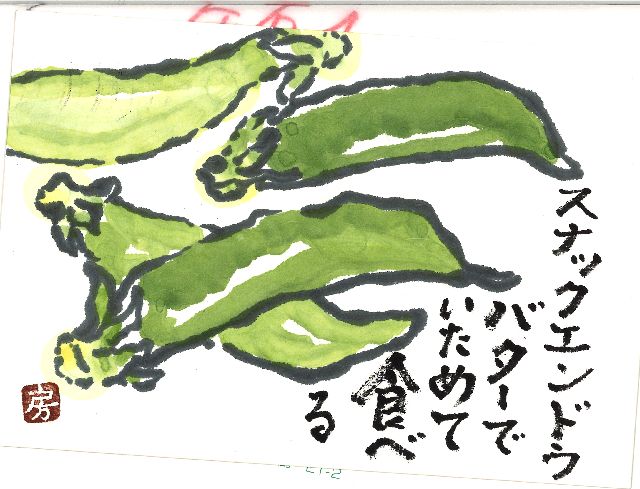 スナックエンドウ
バターで
いためて
食べ
る
房